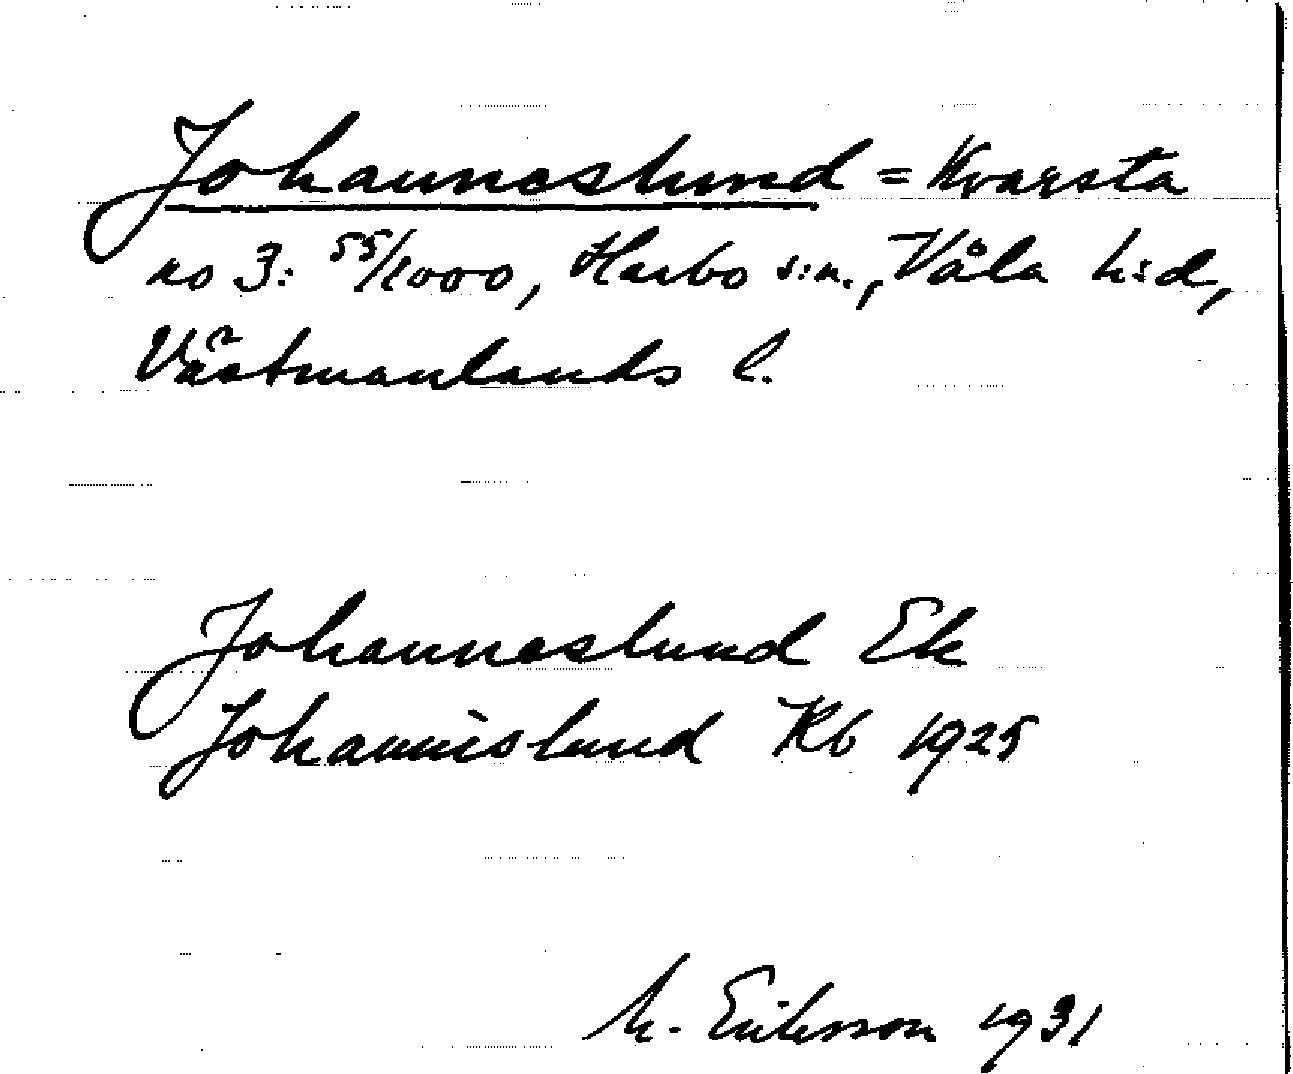 Johanneslund = Kvarsta
no 3: 55/1000, Harbo s:n., Våla h:d,
Västmanlands l.
Johanneslund Ek
Johannislund Kb 1925
M. Eriksson 1931